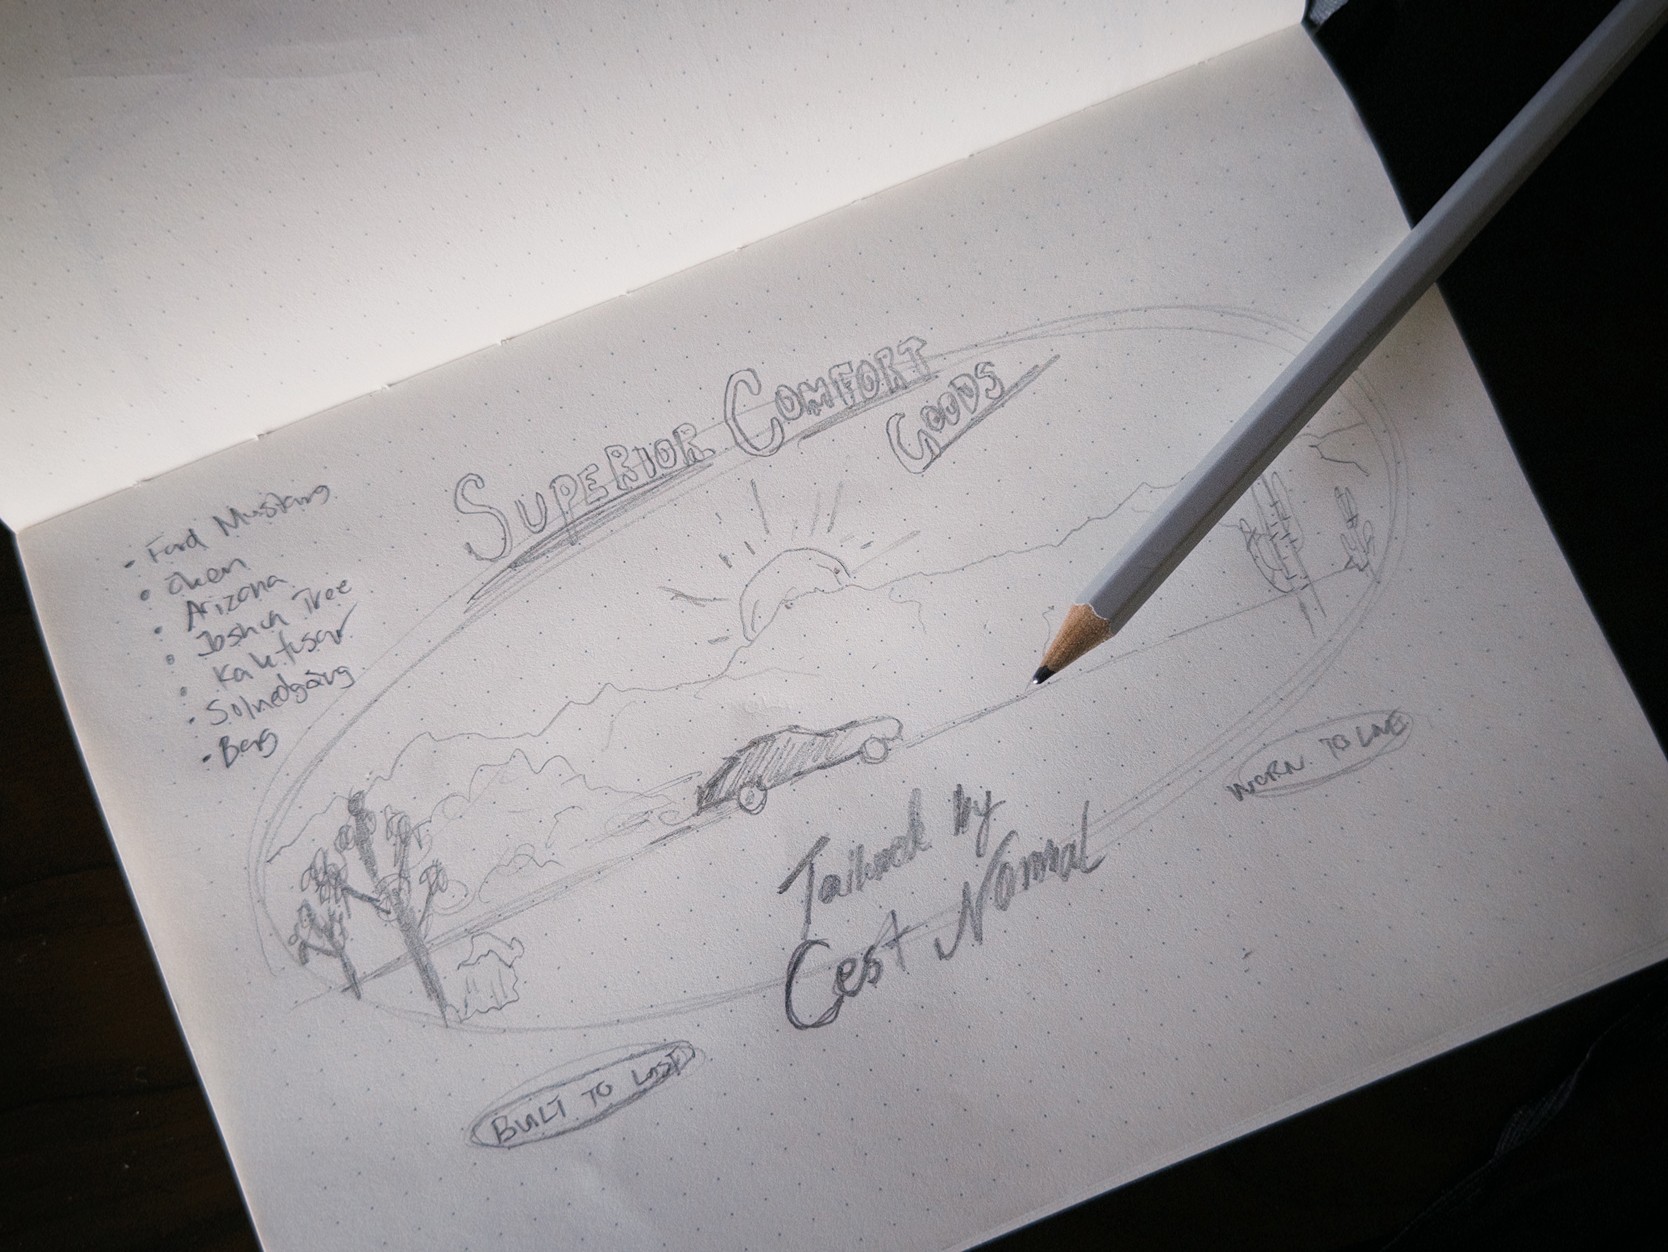 SUPERIOR COMFORT
GOODS
• Ford Mustang
• öken
• Arizona
• Joshua Tree
• Kaktusar
• Solnedgång
• Berg
Tailored by
Cest Normal
WORN TO LIVE
BUILT TO LAST